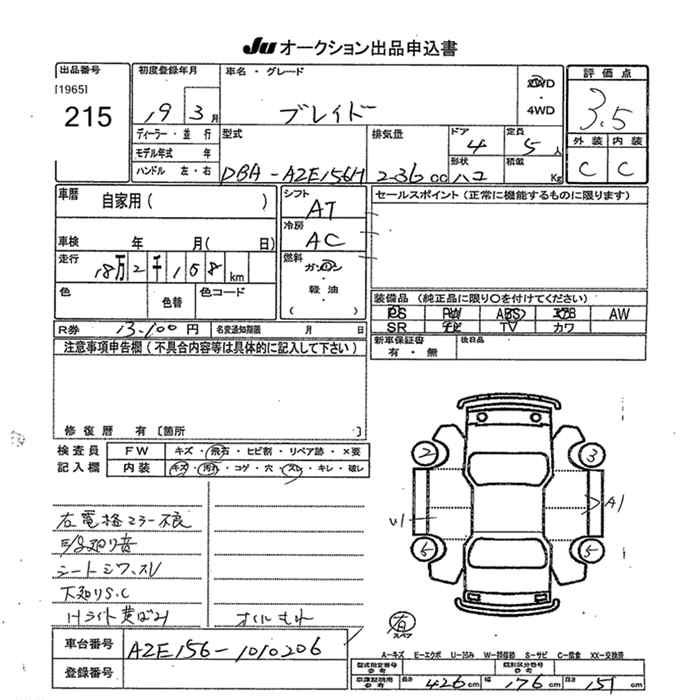 Ju オークション出品申込書
出品番号
[1965]
215
初度登録年月
19 3月
車名・グレード
ブレイド
2WD
・
4WD
評価点
3.5
外装 内装
C C
ディーラー・並行
モデル年式 年
ハンドル 左・右
型式
DBA-AZE156H
排気量
2.36 cc
ドア
4
定員
5人
形状
ハコ
積載
Kg
車歴
自家用( )
シフト
AT
セールスポイント(正常に機能するものに限ります)
車検 年 月( 日)
冷房
AC
走行
18万2千158km
燃料
ガソリン
・
軽油
・
( )
色
色替
色コード
装備品(純正品に限り〇を付けてください)
PS PW ABS エアB AW
SR ナビ TV カワ
R券 13,100円 名変通知期限 月 日
新車保証書
有・無
後日品
注意事項申告欄(不具合内容等は具体的に記入して下さい)
修復歴 有〔箇所 〕
検査員
記入欄
FW キズ・飛石・ヒビ割・リペア跡・×要
内装 キズ・汚れ・コゲ・穴・スレ・キレ・破レ
2 3
U1 A1
5
右電格ミラー不良
シートシワ,スレ
下廻りS.C
Hライト黄ばみ オイルもれ
有
スペア
車台番号 AZE156-1010206
登録番号
A-キズ E-エクボ U-凹み W-補修跡 S-サビ C-腐食 XX-交換済
型式指定番号
参考
類別区分番号
参考
車庫証明用
参考
長さ 426cm 幅 176cm 高さ 151cm